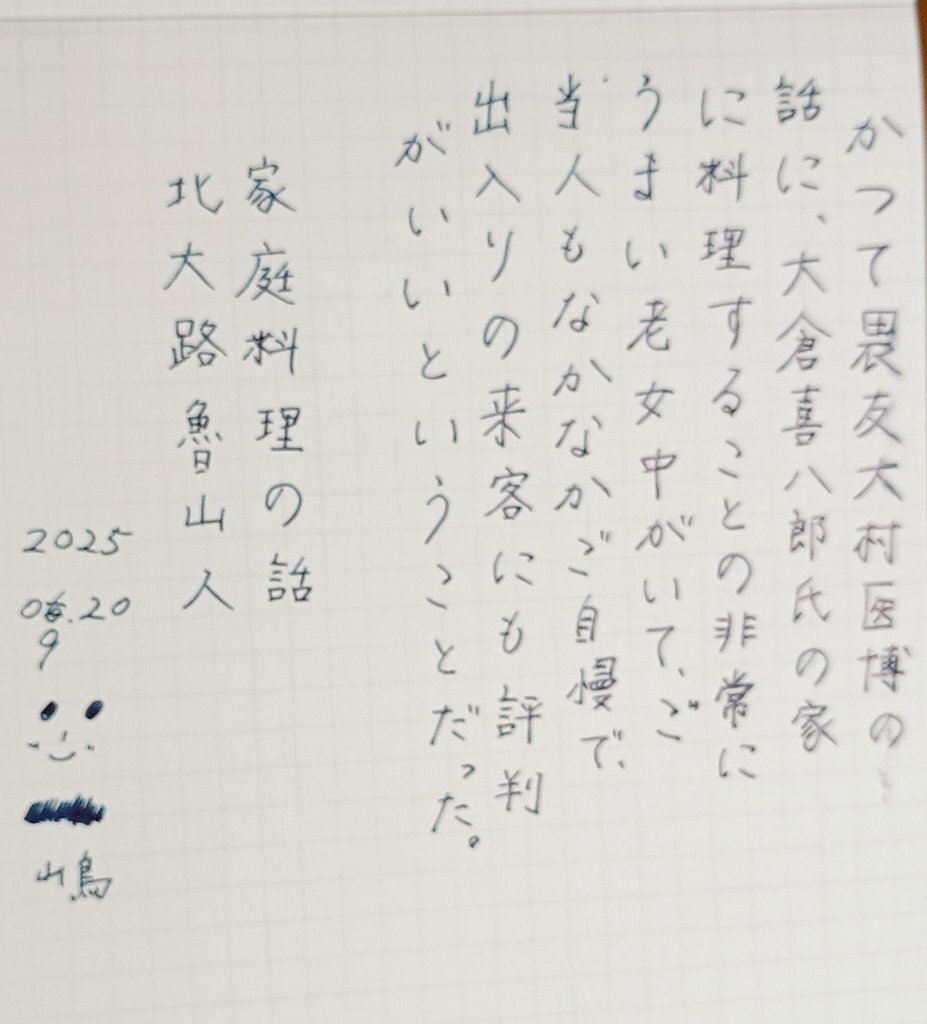 かつて畏友大村医博の
話に、大倉喜八郎氏の家
に料理することの非常に
うまい老女中がいて、ご
当人もなかなかご自慢で、
出入りの来客にも評判
がいいということだった。
家庭料理の話
北大路魯山人
2025
06.20
9
山鳥